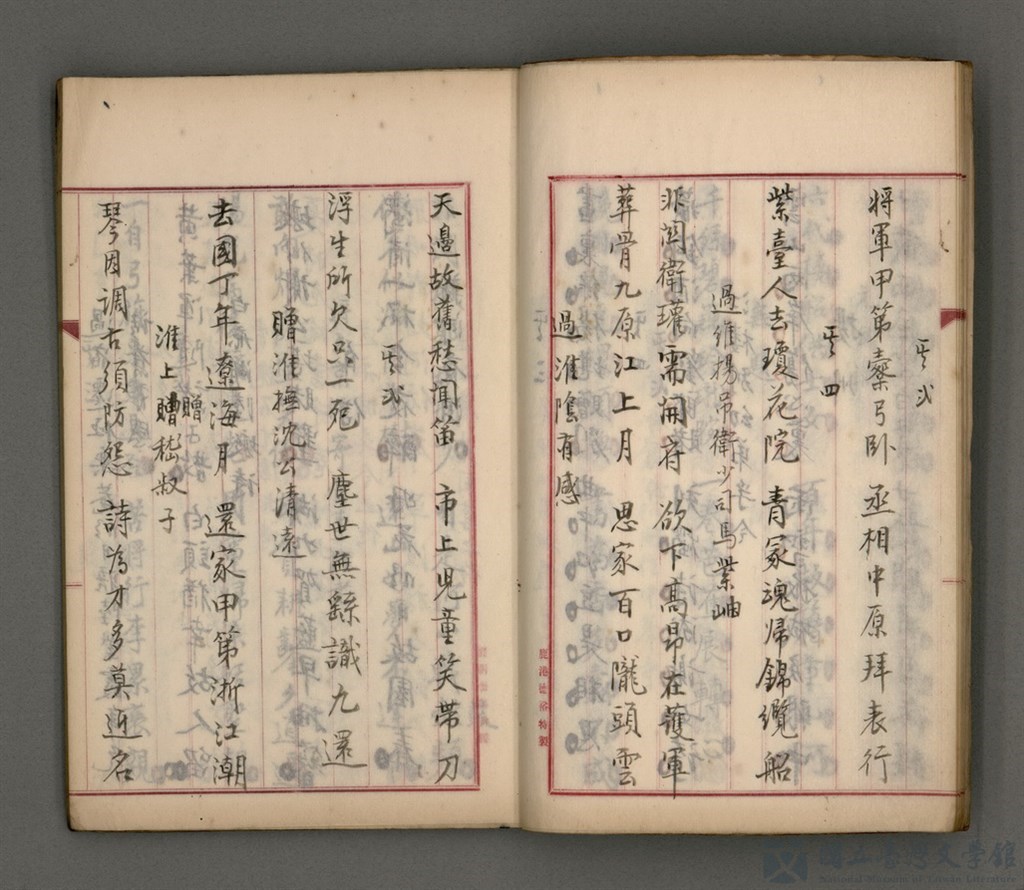 其弍
將軍甲第櫜弓卧 丞相中原拜表行
其四
紫臺人去瓊花院 青冢魂歸錦纜船
過維揚吊衛少司馬紫岫
非関衛瓘需開府 欲下高昂在護軍
葬骨九原江上月 思家百口隴頭雲
過淮陰有感
天邊故舊愁聞笛 市上児童笑帶刀
其弍
浮生所欠只一死 塵世無繇識九還
贈淮撫沈公清遠
去國丁年遼海月 還家甲第浙江潮
淮上贈嵇叔子
贈
琴因调古須防怨 詩為才多莫近名
鹿港 特製
國立臺灣文學館
National Museum of Taiwan Literature